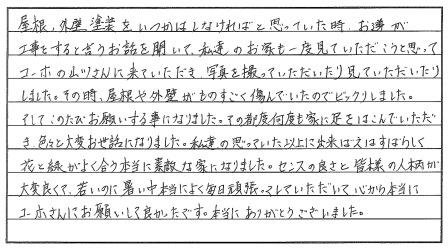 屋根、外壁塗装をいつかはしなければと思っていた時、お隣が
工事をすると言うお話を聞いて、私達のお家も一度見ていただこうと思って
ユーホーの山ツさんに来ていただき、写真を撮っていただいたり見ていただいたり
しました。その時、屋根や外壁がものすごく傷んでいたのでビックリしました。
そしてこのたびお願いする事になりました。その都度何度も家に足をはこんでいただ
き色々と大変お世話になりました。私達の思っていた以上に出来ばえはすばらしく
花と緑がよく合う本当に素敵な家になりました。センスの良さと皆様の人柄が
大変良くて、若いのに暑い中本当によく毎日頑張ってしていただいて心から本当に
ユーホーさんにお願いして良かったです。本当にありがとうございました。